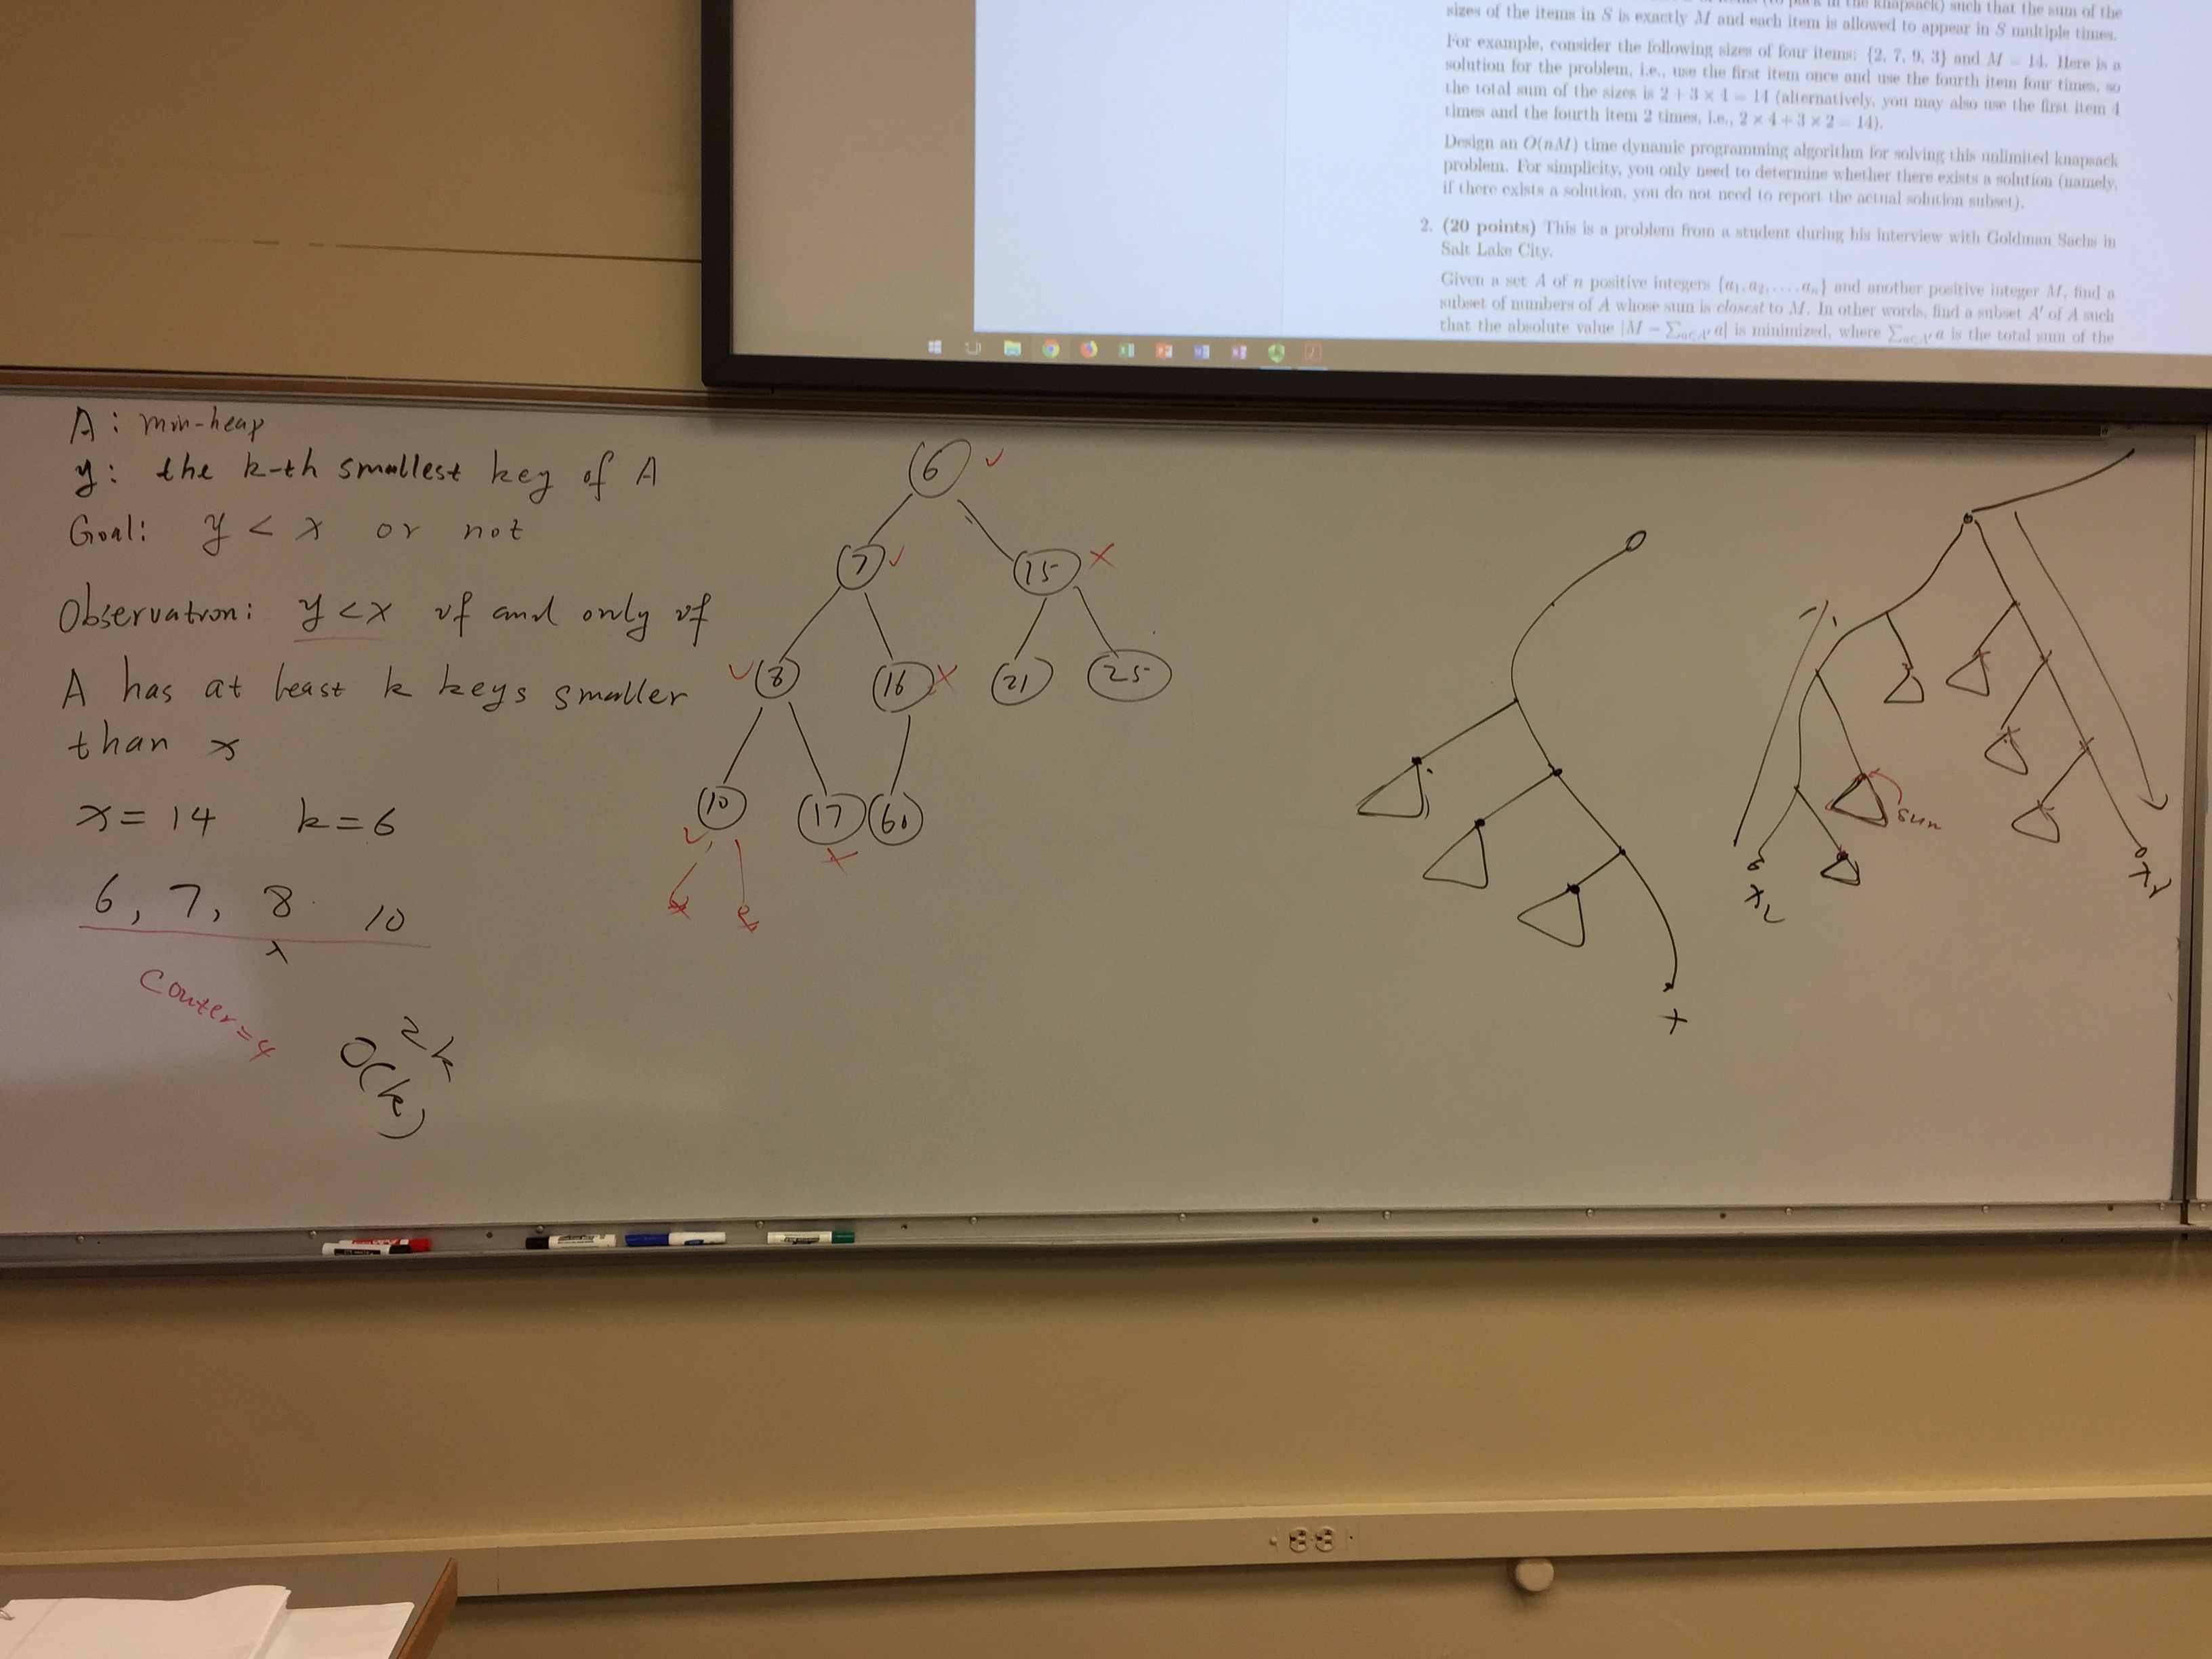 sizes of the items in S is exactly M and each item is allowed to appear in S multiple times.
For example, consider the following sizes of four items: {2, 7, 9, 3} and M = 14. Here is a
solution for the problem, i.e., use the first item once and use the fourth item four times, so
the total sum of the sizes is 2 + 3 × 4 = 14 (alternatively, you may also use the first item 4
times and the fourth item 2 times, i.e., 2 × 4 + 3 × 2 = 14).
Design an O(nM) time dynamic programming algorithm for solving this unlimited knapsack
problem. For simplicity, you only need to determine whether there exists a solution (namely,
if there exists a solution, you do not need to report the actual solution subset).
2. (20 points) This is a problem from a student during his interview with Goldman Sachs in
Salt Lake City.
Given a set A of n positive integers {a₁, a₂, . . . , aₙ} and another positive integer M, find a
subset of numbers of A whose sum is closest to M. In other words, find a subset A′ of A such
that the absolute value |M − ∑a∈A′ a| is minimized, where ∑a∈A′ a is the total sum of the
A: min-heap
y: the k-th smallest key of A
Goal: y < x or not
Observation: y < x if and only if
A has at least k keys smaller
than x
x = 14 k = 6
6, 7, 8 10
Couter = 4
2k
O(k)
6
7
15
8
16
21
25
10
17
60
x
sum
xL
xr